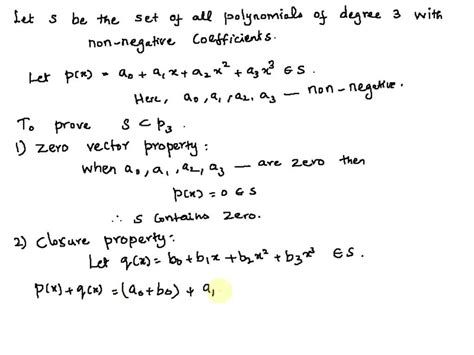 Let s be the set of all polynomials of degree 3 with
non-negative coefficients.
Let p(x) = a₀ + a₁x + a₂x² + a₃x³ ∈ S.
Here, a₀, a₁, a₂, a₃ — non-negative.
To prove S ⊂ P₃.
1) Zero vector property:
when a₀, a₁, a₂, a₃ — are zero then
p(x) = 0 ∈ S
∴ S contains zero.
2) Closure property:
Let q(x) = b₀ + b₁x + b₂x² + b₃x³ ∈ S.
p(x) + q(x) = (a₀ + b₀) + a₁